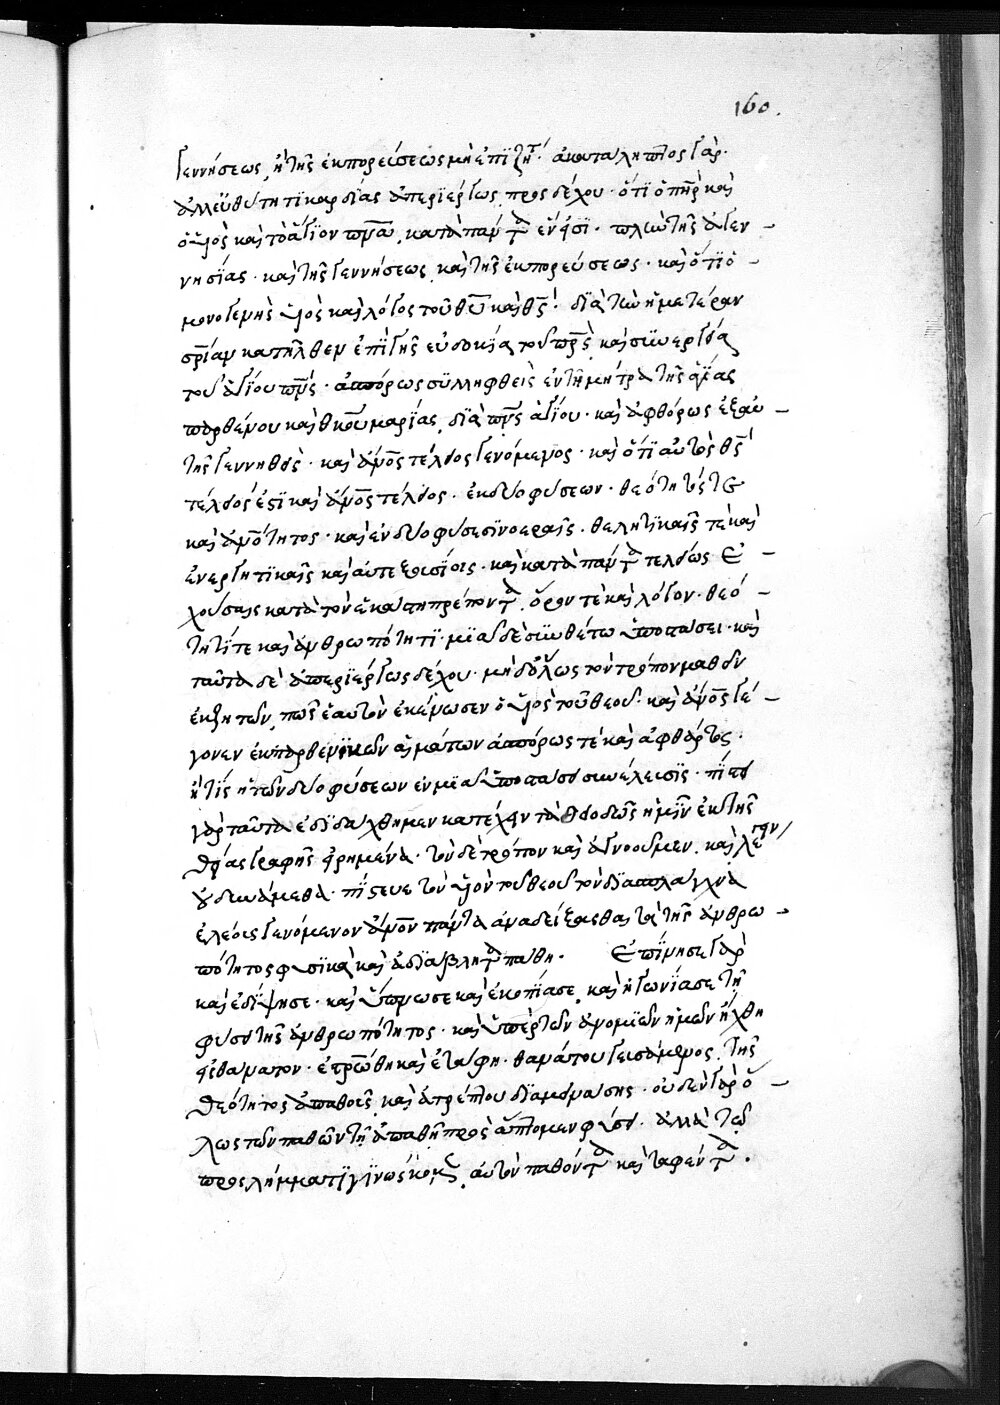 160.
γεννήσεως, ἢ τῆς ἐκπορεύσεως μὴ ἐπϊζήτ· ἀκατάληπτος γάρ·
ἀλλ' εὐθύτητι καρδίας ἀπερϊέργως προσδέχου· ὅτι ὁ πηρ καὶ
ὁ ὑιὸς καὶ τὸ ἅγϊον πνᾶ, κατὰ πάντα ἕν εἰσι· πλὴν τῆς ἀγεν-
νησίας· καὶ τῆς γεννήσεως καὶ τῆς ἐκπορεύσεως· καὶ ὅτι ὁ-
μονογενὴς ὑιὸς καὶ λόγος τοῦ θῦ καὶ θς· διὰ τὴν ἡμετέραν
σρίαν κατῆλθεν ἐπὶ γῆς εὐδοκία τοῦ πρς καὶ συνεργία
τοῦ ἁγίου πνς· ἀσπόρως συλληφθεὶς ἐν τῇ μήτρα τῆς ἁγίας
παρθένου καὶ θκου μαρίας, διὰ πνς ἁγίου· καὶ ἀφθόρως ἐξ αὐ-
τῆς γεννηθεὶς· καὶ ἄνος τέλειος γενόμενος· καὶ ὅτι αὐτὸς θς
τέλειός ἐστι καὶ ἄνος τέλειος· ἐκ δύο φύσεων· θεότητός τε
καὶ ἀνότητος· καὶ ἐν δύο φύσεσι νοεραῖς· θελητικαῖς τὲ καὶ
ἐνεργητικαῖς καὶ αὐτεξουσίοις· καὶ κατὰ πάντα τελείως ἐ-
χούσαις κατὰ τὸν ἑκάστη πρέποντα ὅρον τὲ καὶ λόγον· θεό-
τητί τε καὶ ἀνθρωπότητι· μϊᾶ δὲ συνθέτω ὑποστάσει· καὶ
ταῦτα δὲ ἀπερϊέργως δέχου· μὴ δόλως τὸν τρόπον μαθεῖν
ἐκζητῶν, πῶς ἑαυτὸν ἐκένωσεν ὁ ὑιὸς τοῦ θεοῦ· καὶ ἄνος γέ-
γονεν ἐκ παρθενικῶν αἱμάτων ἀσπόρως τὲ καὶ ἀφθάρτως·
ἢ τίς ἡ τῶν δύο φύσεων ἐν μϊᾶ ὑποστάσει συνέλευσϊς· πίστει
γὰρ ταῦτα ἐδϊδάχθημεν κατέχειν τὰ θειοδῶς ἡμῖν ἐκ τῆς
θείας γραφῆς εἰρημένα· τὸν δὲ τρόπον καὶ ἀγνοοῦμεν, καὶ λέγειν
οὐ δυνάμεθα· πίστευε τὸν ὑιὸν τοῦ θεοῦ τὸν διὰ σπλάγχνα
ἐλέους γενόμενον ἄνον πάντα ἀναδείξασθαι τὰ τῆς ἀνθρω-
πότητος φυσϊκὰ καὶ ἀδϊάβλητα πάθη· Ἐπείνησε γὰρ
καὶ ἐδίψησε· καὶ ὕπνωσε καὶ ἐκοπίασε, καὶ ἠγωνίασε τῇ
φύσει τῆς ἀνθρωπότητος· καὶ ὑπὲρ τῶν ἀνομϊῶν ἡμῶν ἤχθη
εἰς θάνατον· ἐστρώθη καὶ ἐτάφη· θανάτου γευσάμενος, τῆς
θεότητος ἀπαθοῦς καὶ ἀτρέπτου διαμεινάσης· οὐδὲν γὰρ ὅ-
λως τῶν παθῶν τῇ ἀπαθεῖ προσάπτομεν φύσει· ἀλλὰ τῶ
προσλήμματι γϊνώσκομεν, αὐτὸν παθόντα καὶ ταφέντα.